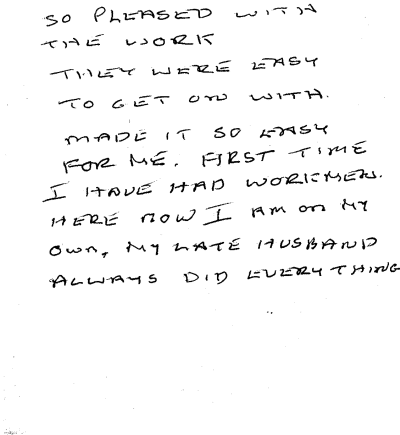 SO PLEASED WITH
THE WORK
THEY WERE EASY
TO GET ON WITH.
MADE IT SO EASY
FOR ME. FIRST TIME
I HAVE HAD WORKMEN.
HERE NOW I AM ON MY
OWN, MY LATE HUSBAND
ALWAYS DID EVERYTHING